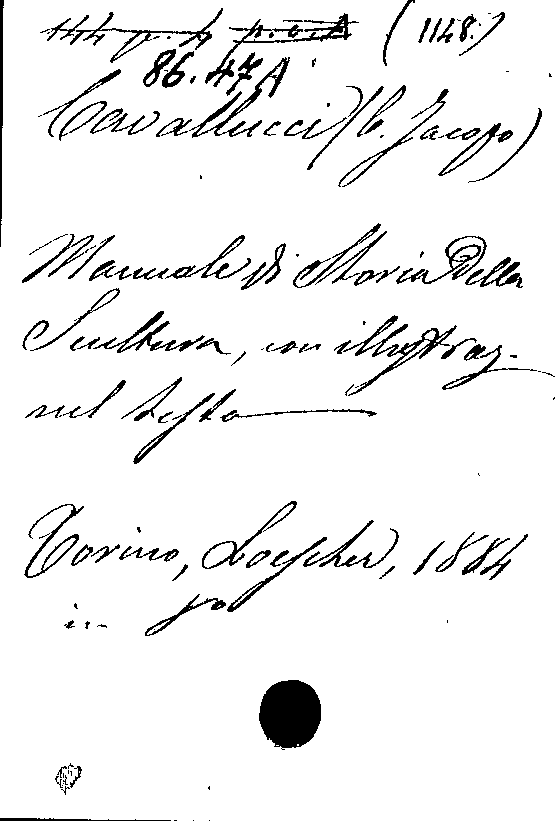 144 p. 4 p.o.A (1148.)
86.47A
Cavallucci (C. Jacopo)
Manuale di Storia Della
Scultura, con illustraz.
nel testo
Torino, Loescher, 1884
in